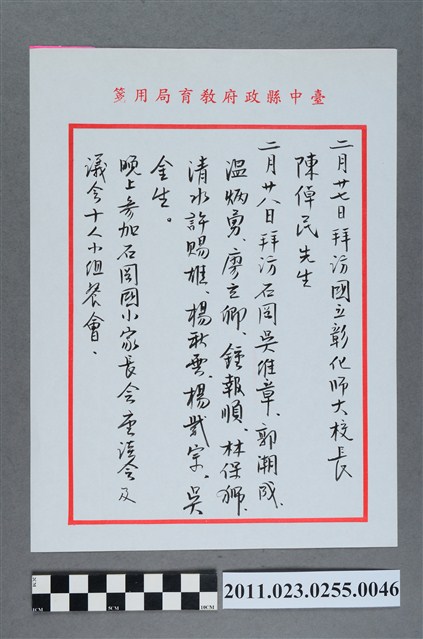 臺中縣政府教育局用箋
二月廿七日拜訪國立彰化師大校長
陳倬民先生
二月廿八日拜訪石岡吳維章、郭潮成、
溫炳勇、廖立卿、鍾報順、林保獅、
清水許賜雄、楊秋雲、楊宗、吳
金生。
晚上參加石岡國小家長會座談會及
議會十人小組餐會、
1CM
5CM
10CM
2011.023.0255.0046